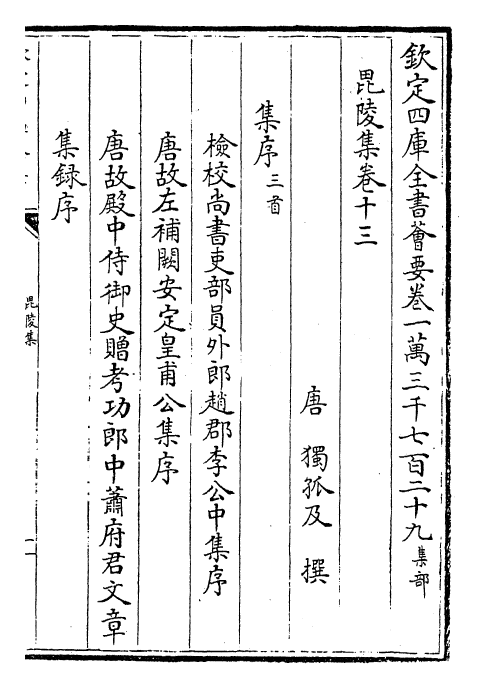 欽定四庫全書薈要卷一萬三千七百二十九集部
毘陵集卷十三
唐 獨孤及 撰
集序三首
檢校尚書吏部員外郎趙郡李公中集序
唐故左補闕安定皇甫公集序
唐故殿中侍御史贈考功郎中蕭府君文章
集録序
毘陵集
一